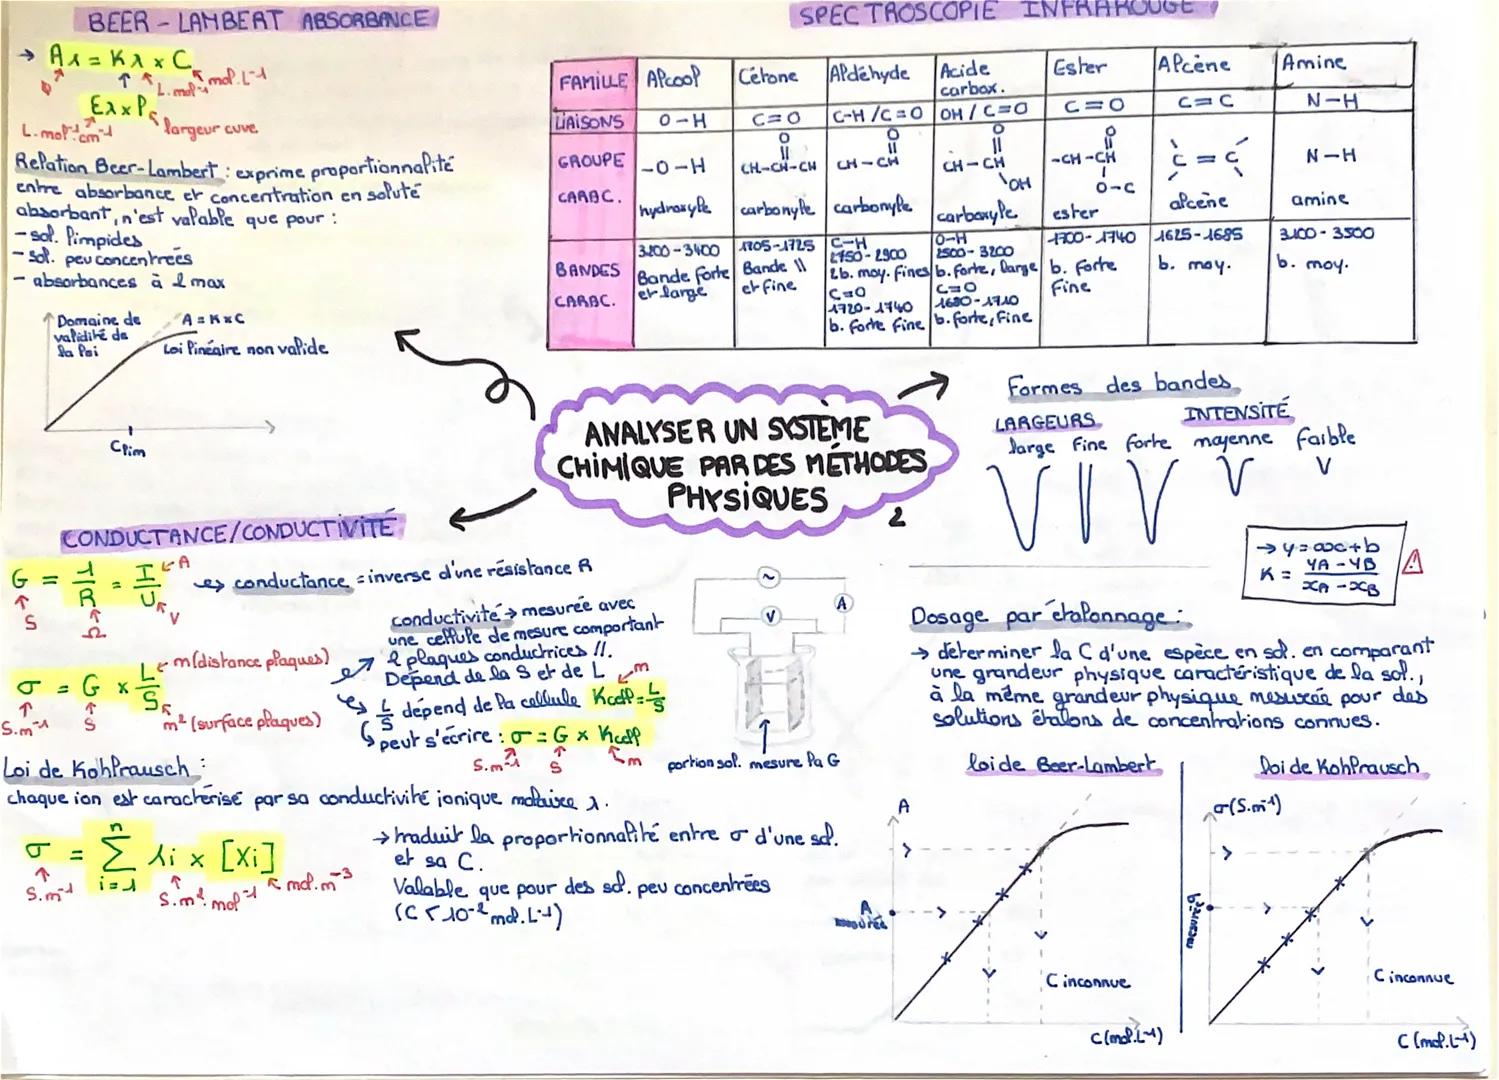 BEER - LAMBERT ABSORBANCE
→ Aλ = Kλ x C
Ø
L.mol⁻¹
mol.L⁻¹
Ελ x P
L.mol⁻¹.cm⁻¹
largeur cuve
Relation Beer-Lambert : exprime proportionnalité
entre absorbance et concentration en soluté
absorbant, n'est valable que pour :
- sol. limpides
- sol. peu concentrées
- absorbances à 2 max
Domaine de
validité de
la loi
A = K x C
Loi linéaire non valide
Clim
SPECTROSCOPIE INFRAROUGE
FAMILLE Alcool Cétone Aldéhyde Acide carbox. Ester Alcène Amine
LIAISONS O-H C=O C-H / C=O OH / C=O C=O C=C N-H
GROUPE CARAC.
-O-H
O
CH-CH-CH
O
CH-CH
O
CH-CH
OH
O
-CH-CH
O-C
C = C
N-H
hydroxyle carbonyle carbonyle carboxyle ester alcène amine
BANDES CARAC.
3200-3400
Bande forte
et large
1705-1725
Bande \\
et fine
C-H
2750-2900
2b. moy. fines
C=O
1720-1740
b. forte fine
O-H
2500-3200
b. forte, large
C=O
1680-1710
b. forte, fine
1700-1740
b. forte
fine
1625-1685
b. moy.
3100-3500
b. moy.
ANALYSER UN SYSTÈME
CHIMIQUE PAR DES MÉTHODES
PHYSIQUES
2
Formes des bandes
LARGEURS INTENSITÉ
large fine forte moyenne faible
→ y = ax+b
K = yA - yB
xA - xB
CONDUCTANCE/CONDUCTIVITÉ
G = 1/R = I/U
A
S
Ω
V
conductance = inverse d'une résistance R
σ = G x L/S
m (distance plaques)
S.m⁻¹
S
m² (surface plaques)
conductivité → mesurée avec
une cellule de mesure comportant
2 plaques conductrices //.
Dépend de la S et de L
L/S dépend de la cellule Kcell = L/S
m
peut s'écrire : σ = G x Kcell
S.m⁻¹
S
m
V
A
portion sol. mesure la G
Loi de Kohlrausch :
chaque ion est caractérisé par sa conductivité ionique molaire λ.
σ = n Σ i=1 λi x [Xi]
S.m⁻¹
S.m².mol⁻¹
mol.m⁻³
→ traduit la proportionnalité entre σ d'une sol.
et sa C.
Valable que pour des sol. peu concentrées
(C < 10⁻² mol.L⁻¹)
Dosage par étalonnage :
→ déterminer la C d'une espèce en sol. en comparant
une grandeur physique caractéristique de la sol.,
à la même grandeur physique mesurée pour des
solutions étalons de concentrations connues.
loi de Beer-Lambert
A
A mesurée
C inconnue
C (mol.L⁻¹)
loi de Kohlrausch
σ (S.m⁻¹)
σ mesurée
C inconnue
C (mol.L⁻¹)